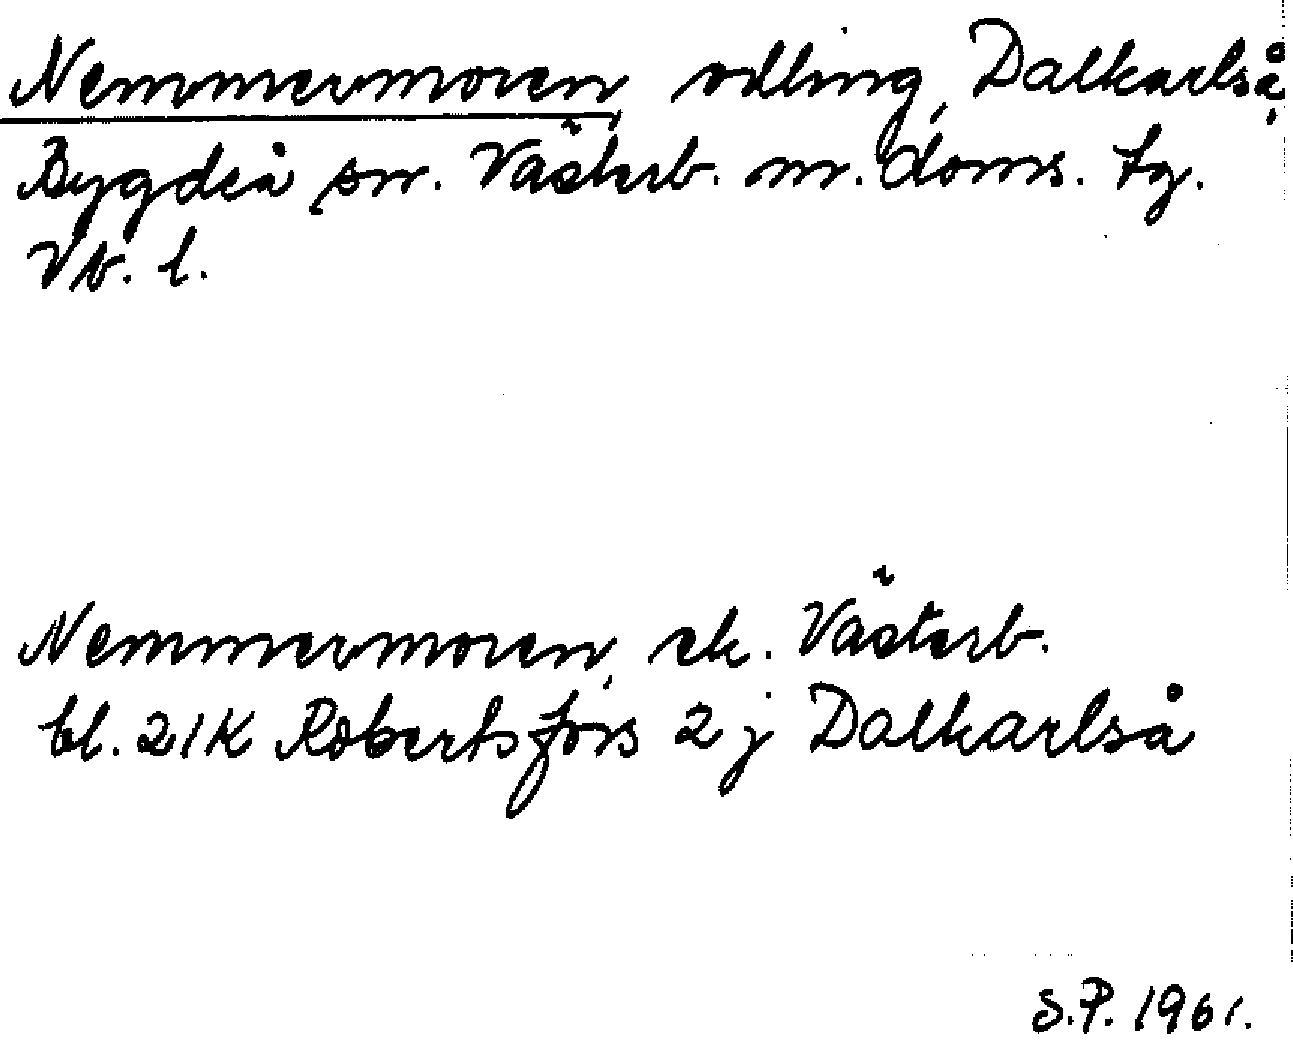 Nemmermoren, odling, Dalkarlså,
Bygdeå sn. Västerb. m. doms. tg.
Vb. l.
Nemmermoren, ek. Västerb.
bl. 21K Robertsfors 2 j Dalkarlså
S.P. 1961.